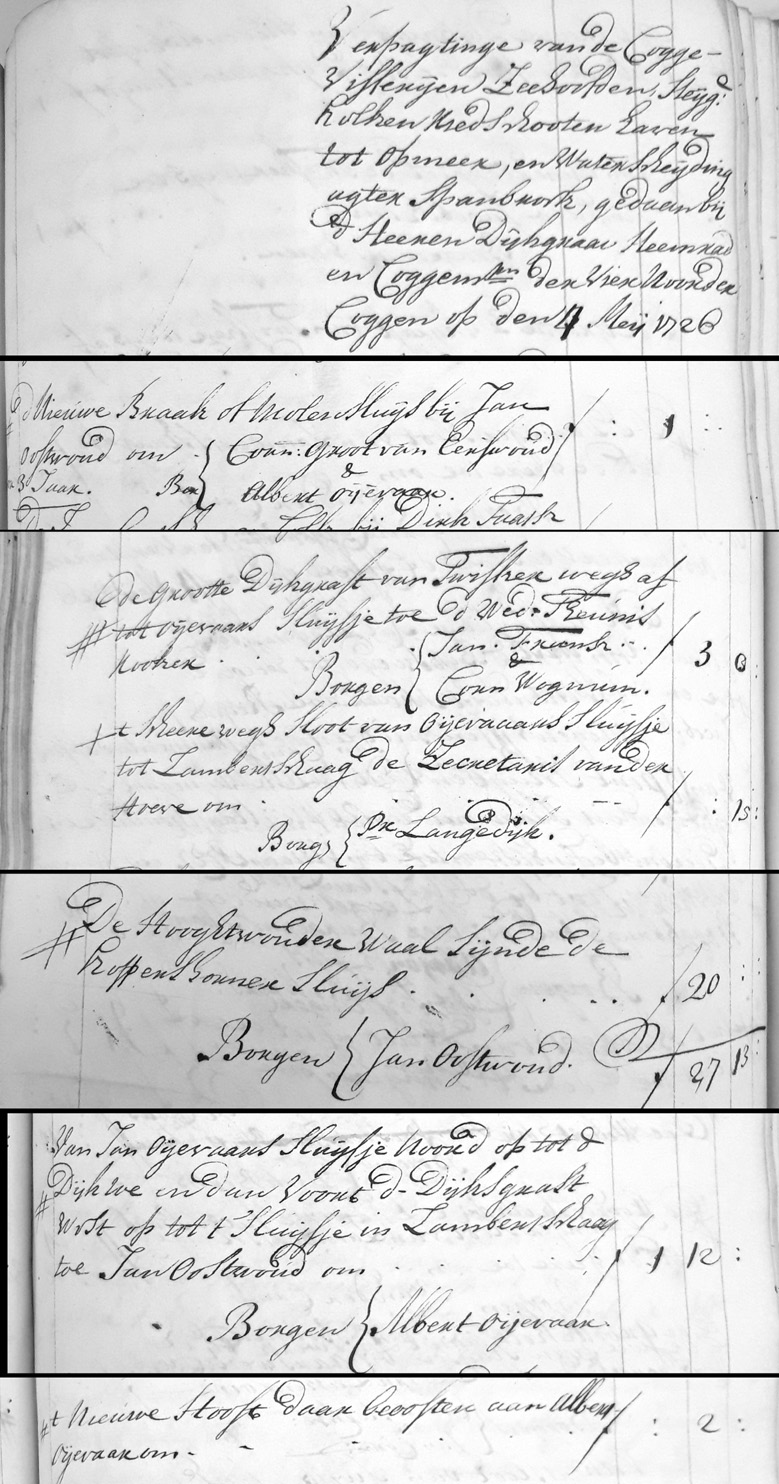 Verpagtinge van de Cogge-
Visserijen Zeehoofden, Steijg:
kolken Rietschooten Haven
tot Opmeer, en Waterscheijding
agter Spanbroek, gedaan bij
d' Heeren Dijkgraav Heemraad
en Coggemrn den Vier Noorder
Coggen op den 4 Meij 1726
d' Nieuwe Braak of Molen Sluijs bij Jan
Oostwoud om { Corn: Groot van Eenswoud / : 1 : :
3 Jaar. Bor { & Albert Oijevaar.
bij Dirk Faasse
de Grootte Dijkgraft van Twisker wegh af
# tot Oijevaars Sluijsje toe d' Wed: Theunis
Kooker . . { Jan. Friensz . . / 3 0:
Borgen { & Corn Wognum.
+ t Scheere wegs Sloot van Oijevaaars Sluijsje
tot Lambertschaag de Secretaris van der
Hoeve om . . . / : 15:
Borgs { Pr Langedijk.
# De Hooghtwouder Waal Sijnde de
koppenshorner Sluijs . . . . . / 20 : :
Borgen { Jan Oostwoud. / 27 13:
Van Jan Oijevaars Sluijsje Noord op tot d'
# Dijk we en dan Voort d- Dijksgraft
West op tot t Sluijsje in Lambertschaag
toe Jan Oostwoud om . . . / 1 12 :
Borgen { Albert Oijevaar.
# t Nieuwe Slooft daar beoosten aan Albert / : 2 :
Oijevaar om -